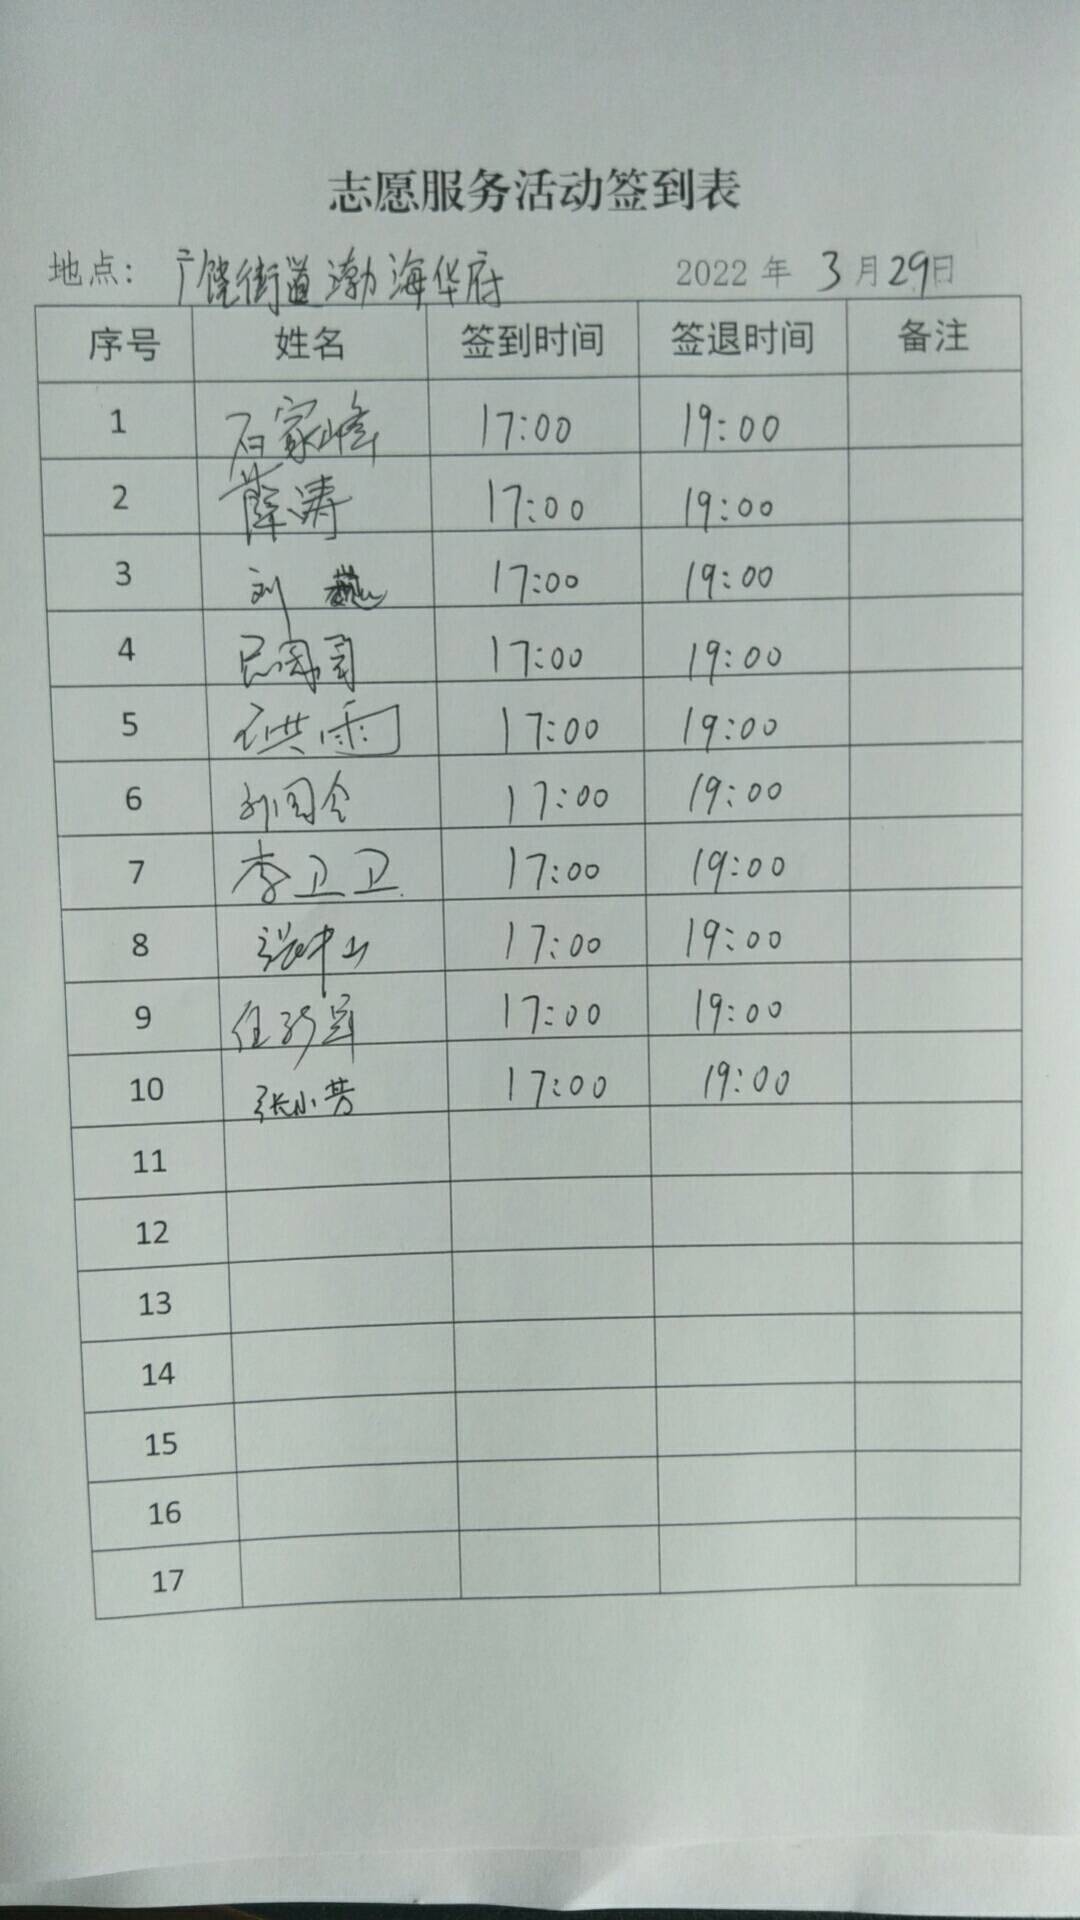 志愿服务活动签到表
地点：广饶街道渤海华府 2022年3月29日
序号 姓名 签到时间 签退时间 备注
1 石家峰 17:00 19:00
2 薛涛 17:00 19:00
3 刘 17:00 19:00
4 17:00 19:00
5 17:00 19:00
6 17:00 19:00
7 李卫卫 17:00 19:00
8 张中山 17:00 19:00
9 任 17:00 19:00
10 张小芳 17:00 19:00
11
12
13
14
15
16
17